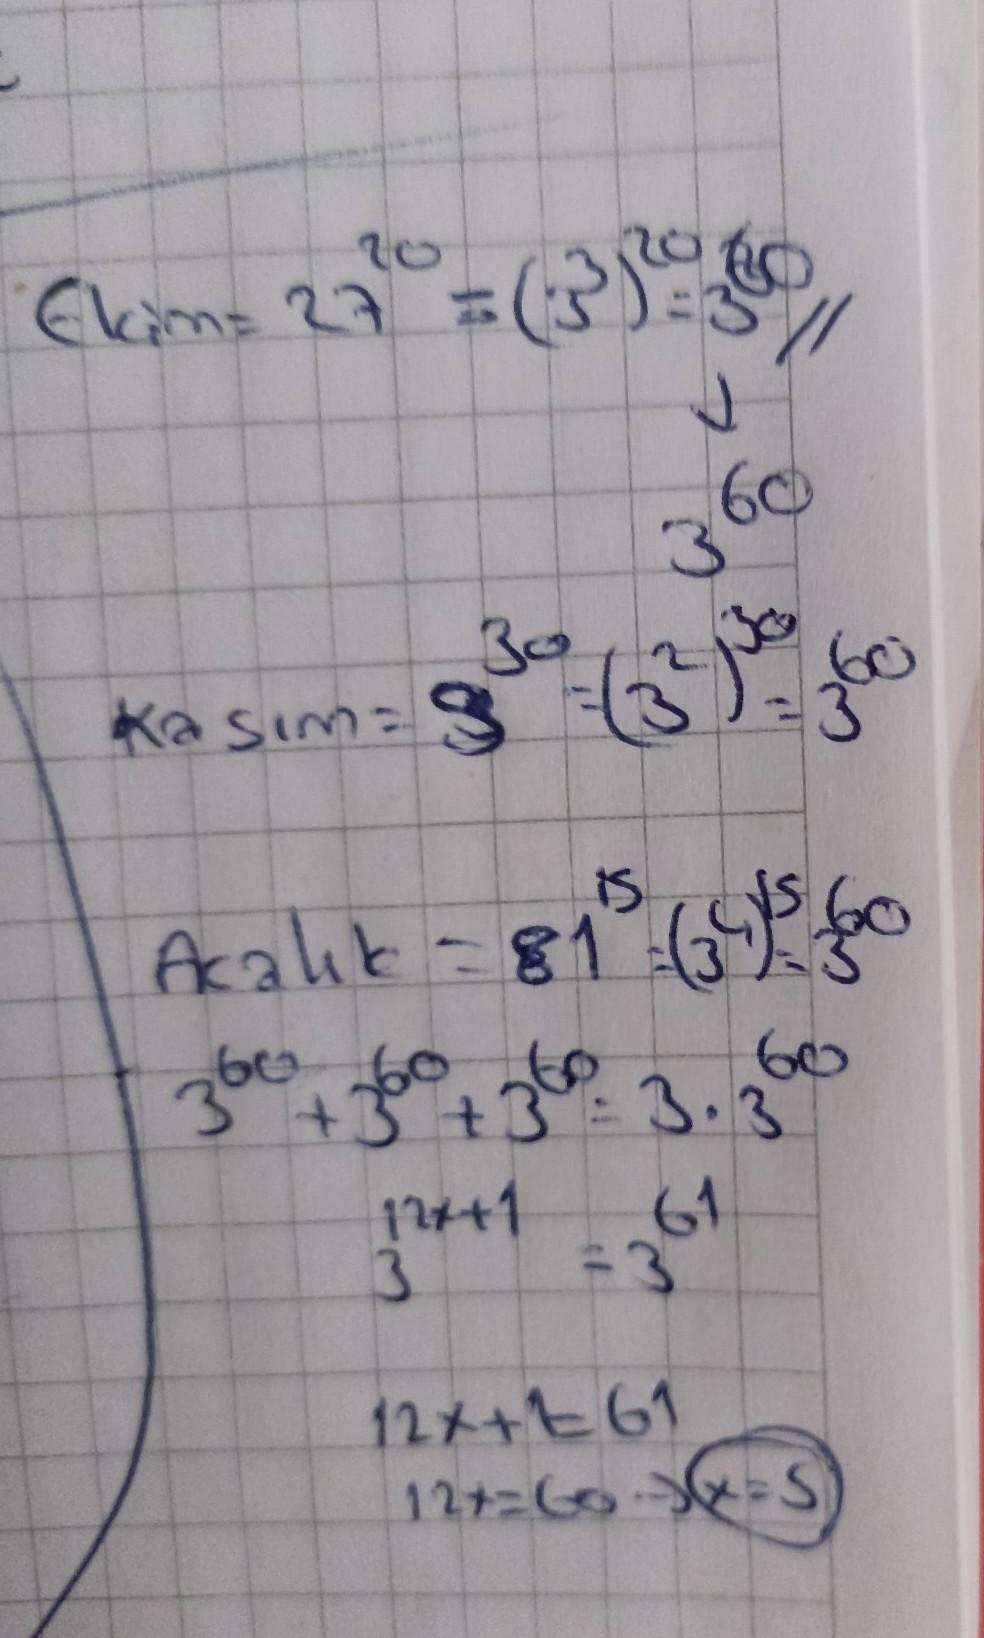 Ekim = 27^20 = (3^3)^20 = 3^60 //
3^60
Kasım = 9^30 = (3^2)^30 = 3^60
Aralık = 81^15 = (3^4)^15 = 3^60
3^60 + 3^60 + 3^60 = 3 . 3^60
3^12x+1 = 3^61
12x+1=61
12x=60 → x=5